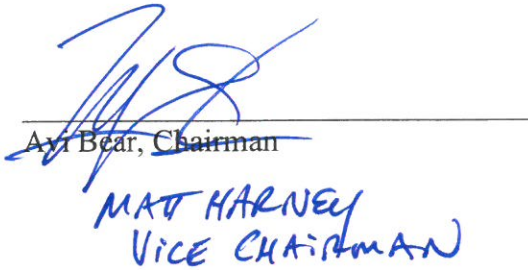 Avi Bear, Chairman
MATT HARNEY
VICE CHAIRMAN